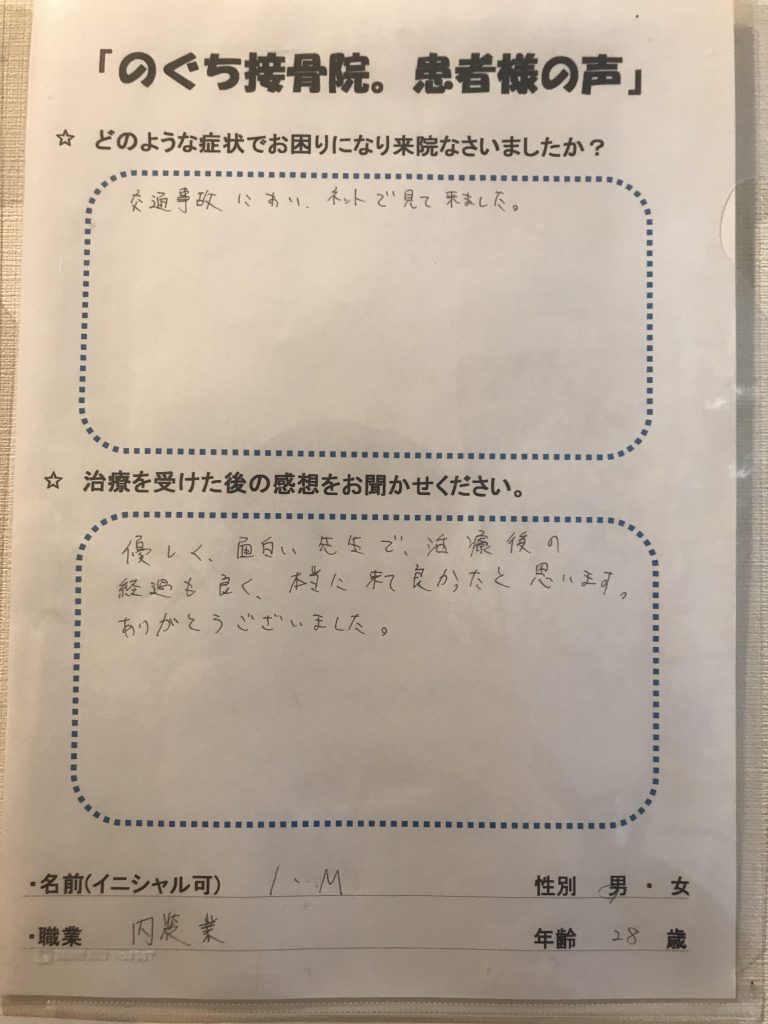 「のぐち接骨院。患者様の声」
☆ どのような症状でお困りになり来院なさいましたか？
交通事故にあい、ネットで見て来ました。
☆ 治療を受けた後の感想をお聞かせください。
優しく、面白い先生で、治療後の
経過も良く、本当に来て良かったと思います。
ありがとうございました。
・名前(イニシャル可) I..M 性別 男・女
・職業 内装業 年齢 28 歳